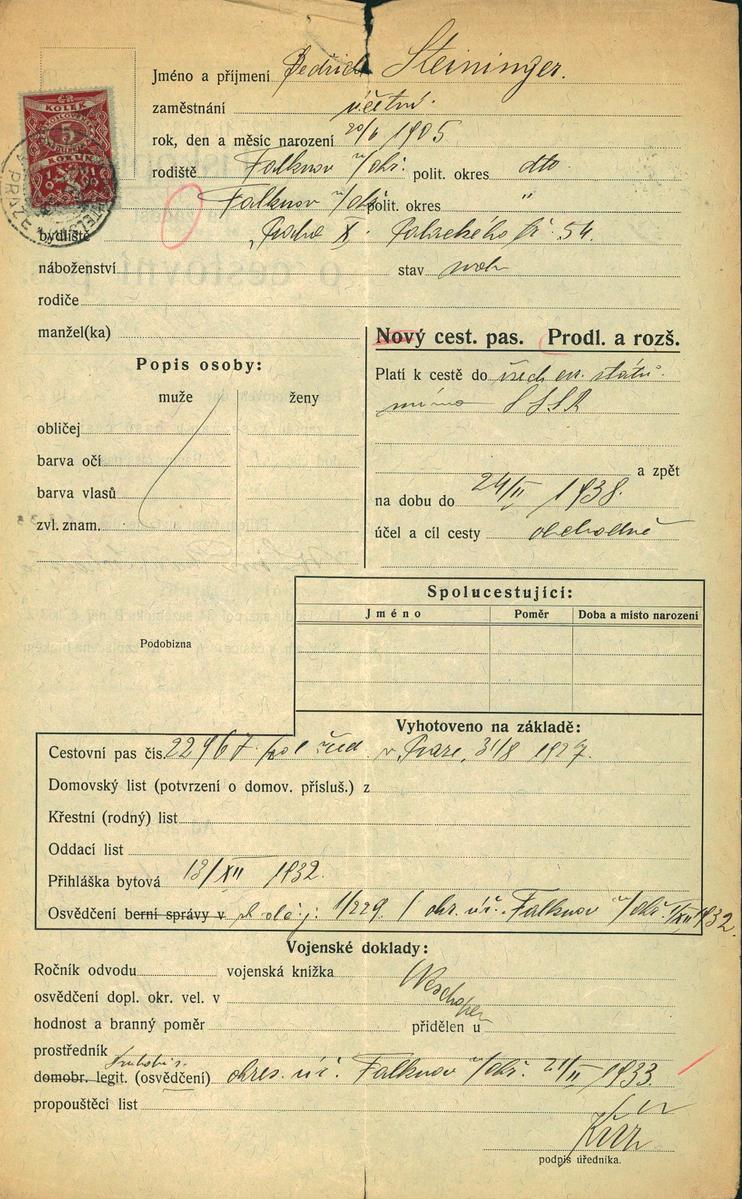 Jméno a příjmení Bedřich Steininger.
zaměstnání účetní.
rok, den a měsíc narození 20/6 1905
KOLEK
5
KORUN
rodiště Falknov n/Ohř. polit. okres dto
Falknov n/Ohř. polit. okres "
bydliště Praha X. Palackého tř. 54.
náboženství stav svob.
rodiče
manžel(ka)
Nový cest. pas. Prodl. a rozš.
Popis osoby:
Platí k cestě do všech ev. států
muže ženy
mimo SSSR
obličej
barva očí
a zpět
barva vlasů
na dobu do 24/II 1938.
zvl. znam.
účel a cíl cesty obchodně
Spolucestující:
Jméno Poměr Doba a místo narození
Podobizna
Vyhotoveno na základě:
Cestovní pas čís. 22967 pol. řed. v Praze, 31/8 1927.
Domovský list (potvrzení o domov. přísluš.) z
Křestní (rodný) list
Oddací list
Přihláška bytová 13/XII 1932.
Osvědčení berní správy v 1/229 okr. úř. Falknov n/Ohř. 1/XII 1932.
Vojenské doklady:
Ročník odvodu vojenská knížka
osvědčení dopl. okr. vel. v Neschopen
hodnost a branný poměr přidělen u
prostředník
domobr. legit. (osvědčení) okres. úř. Falknov n/Ohř. 21/II 1933.
propouštěcí list
podpis úředníka.